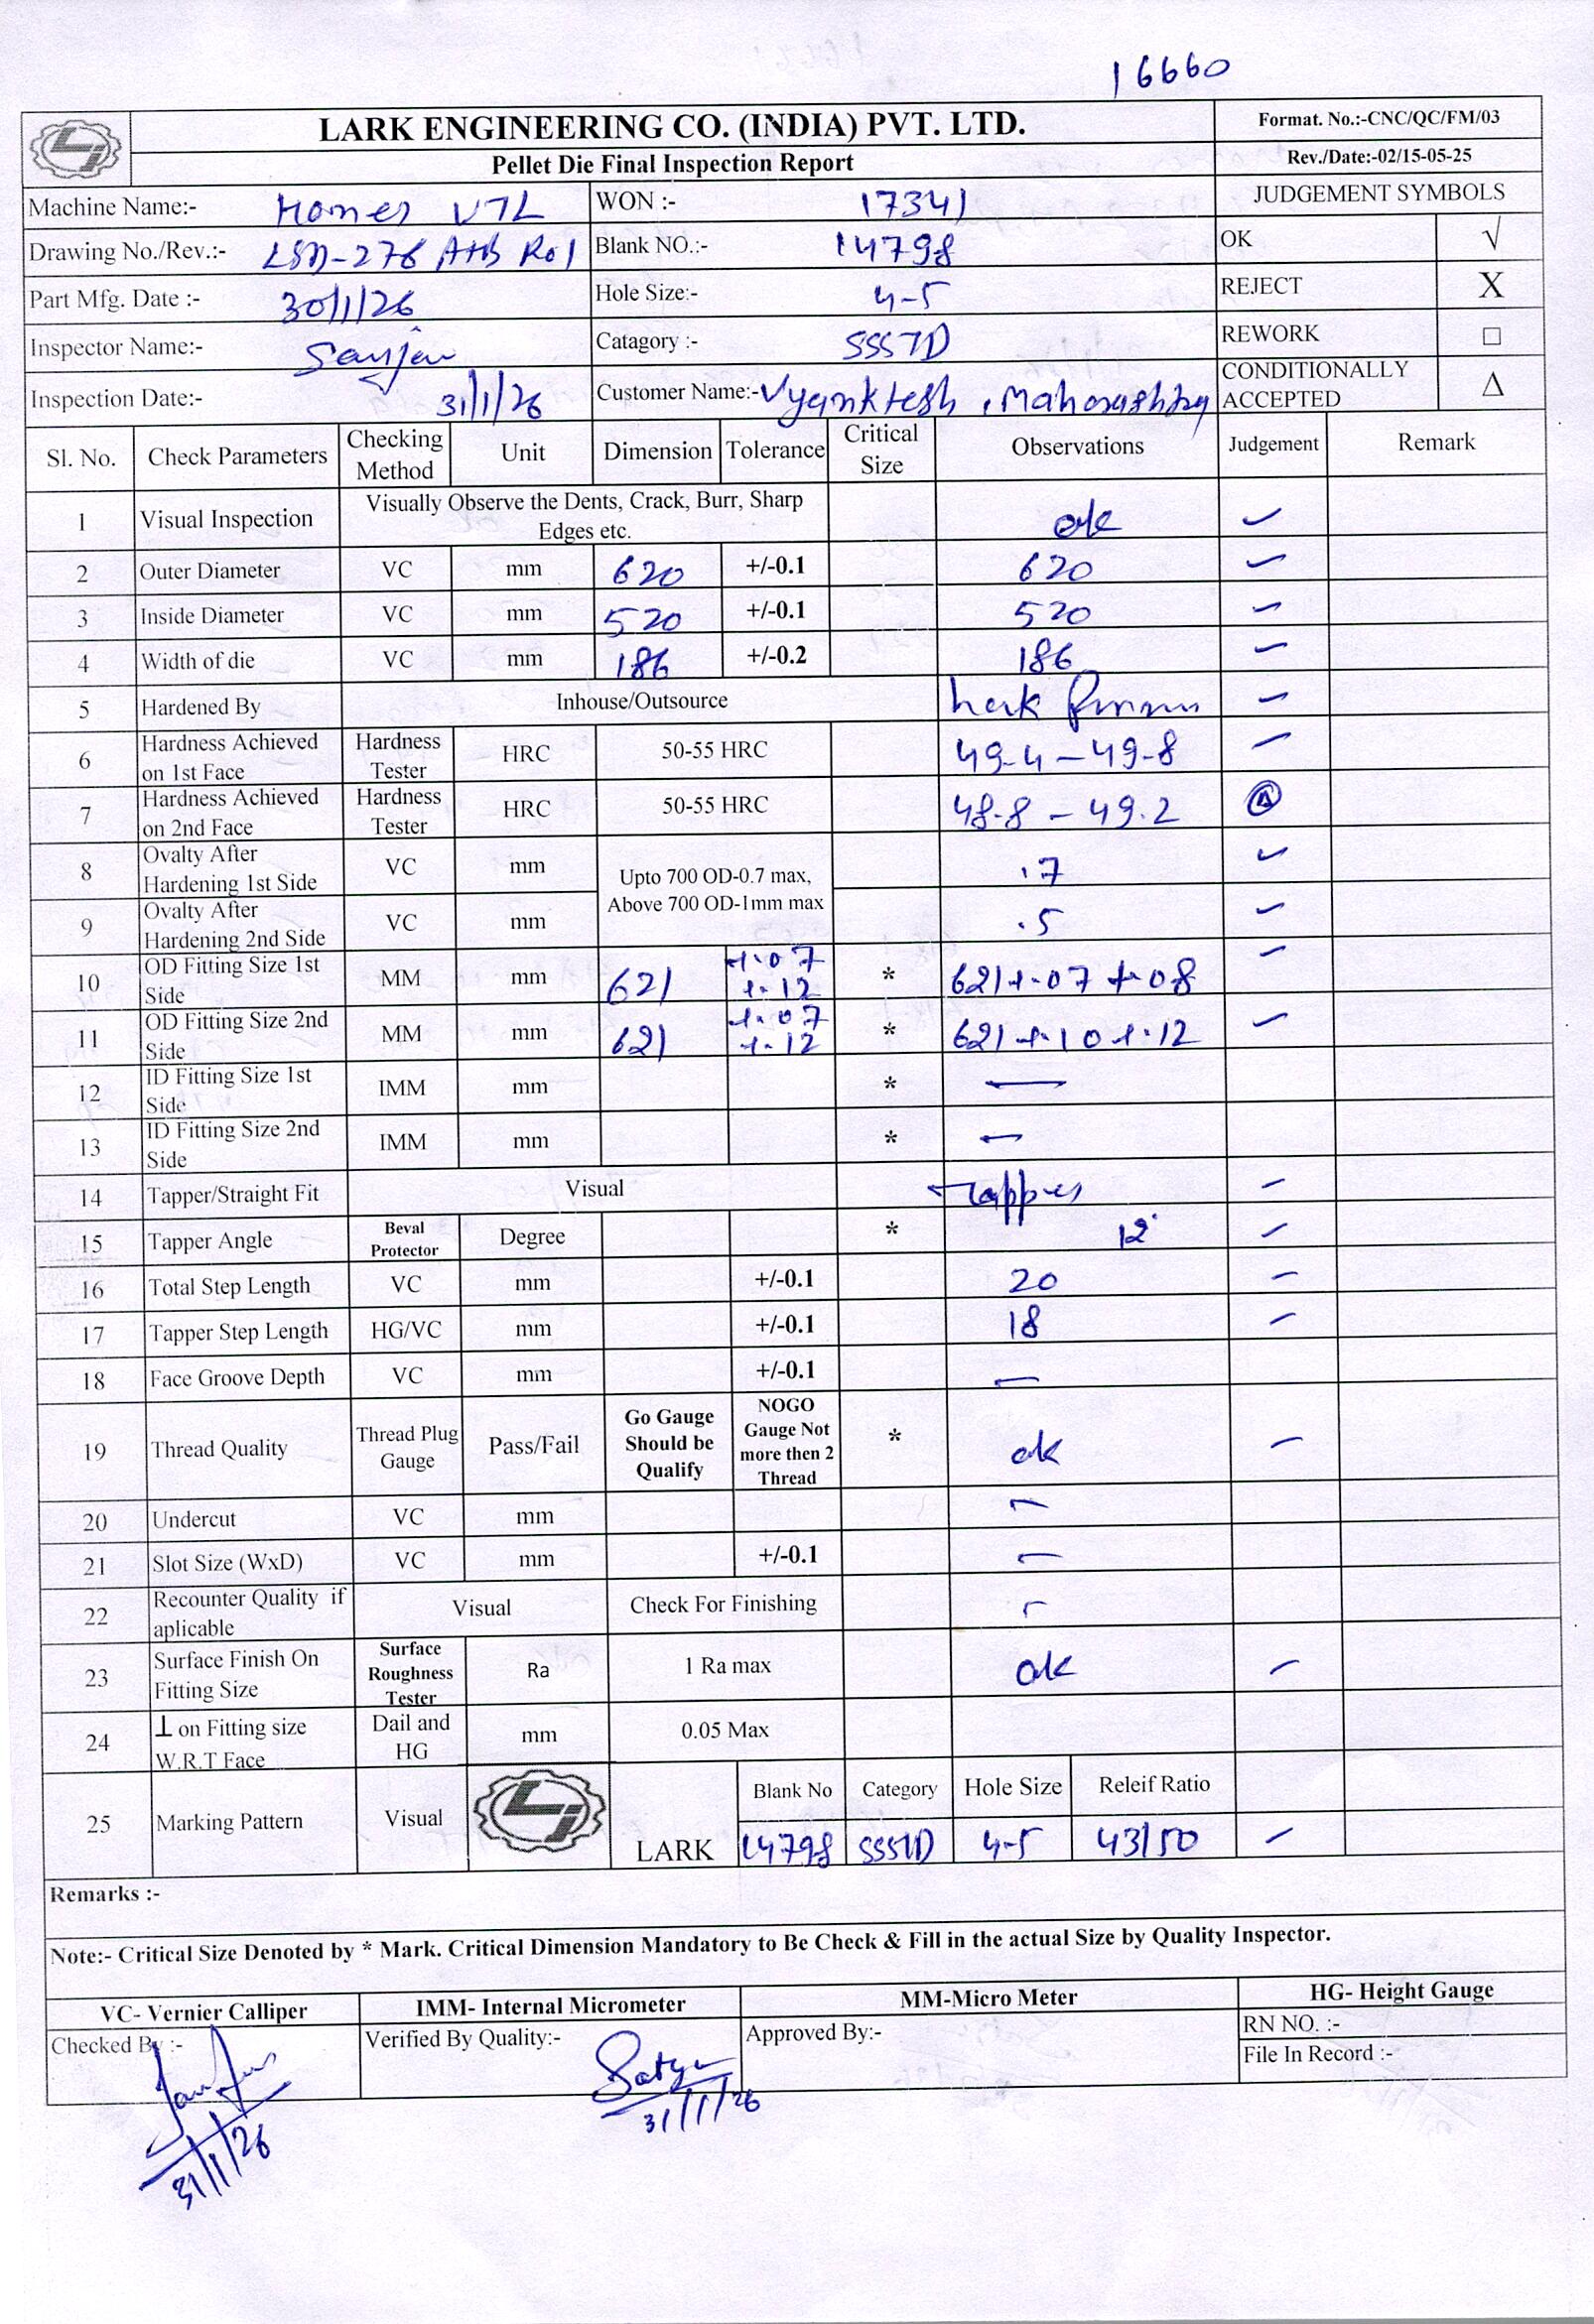 16660
LARK ENGINEERING CO. (INDIA) PVT. LTD.
Format. No.:-CNC/QC/FM/03
Pellet Die Final Inspection Report
Rev./Date:-02/15-05-25
Machine Name:- VTL WON :- 17341 JUDGEMENT SYMBOLS
Drawing No./Rev.:- LSD-276 A+B R01 Blank NO.:- 14798 OK √
Part Mfg. Date :- 30/1/26 Hole Size:- 4-5 REJECT X
Inspector Name:- Sanjeev Catagory :- SSSTD REWORK □
Inspection Date:- 31/1/26 Customer Name:- Vyanktesh, Maharashtra CONDITIONALLY ACCEPTED Δ
Sl. No. Check Parameters Checking Method Unit Dimension Tolerance Critical Size Observations Judgement Remark
1 Visual Inspection Visually Observe the Dents, Crack, Burr, Sharp Edges etc. ok ✓
2 Outer Diameter VC mm 620 +/-0.1 620 ✓
3 Inside Diameter VC mm 520 +/-0.1 520 ✓
4 Width of die VC mm 186 +/-0.2 186 ✓
5 Hardened By Inhouse/Outsource ✓
6 Hardness Achieved on 1st Face Hardness Tester HRC 50-55 HRC 49.4 - 49.8 ✓
7 Hardness Achieved on 2nd Face Hardness Tester HRC 50-55 HRC 48.8 - 49.2 Δ
8 Ovalty After Hardening 1st Side VC mm Upto 700 OD-0.7 max, Above 700 OD-1mm max .7 ✓
9 Ovalty After Hardening 2nd Side VC mm .5 ✓
10 OD Fitting Size 1st Side MM mm 621 +.07 +.12 * 621 +.07 +.08 ✓
11 OD Fitting Size 2nd Side MM mm 621 +.07 +.12 * 621 +.10 +.12 ✓
12 ID Fitting Size 1st Side IMM mm * —
13 ID Fitting Size 2nd Side IMM mm * —
14 Tapper/Straight Fit Visual Tapper ✓
15 Tapper Angle Beval Protector Degree * 12° ✓
16 Total Step Length VC mm +/-0.1 20 ✓
17 Tapper Step Length HG/VC mm +/-0.1 18 ✓
18 Face Groove Depth VC mm +/-0.1 —
19 Thread Quality Thread Plug Gauge Pass/Fail Go Gauge Should be Qualify NOGO Gauge Not more then 2 Thread * ok ✓
20 Undercut VC mm —
21 Slot Size (WxD) VC mm +/-0.1 —
22 Recounter Quality if aplicable Visual Check For Finishing —
23 Surface Finish On Fitting Size Surface Roughness Tester Ra 1 Ra max ok ✓
24 ⊥ on Fitting size W.R.T Face Dail and HG mm 0.05 Max
25 Marking Pattern Visual LARK Blank No Category Hole Size Releif Ratio
14798 SSSTD 4-5 43/50 ✓
Remarks :-
Note:- Critical Size Denoted by * Mark. Critical Dimension Mandatory to Be Check & Fill in the actual Size by Quality Inspector.
VC- Vernier Calliper IMM- Internal Micrometer MM-Micro Meter HG- Height Gauge
Checked By :- Verified By Quality:- Approved By:- RN NO. :-
File In Record :-
Satya
31/1/26
31/1/26